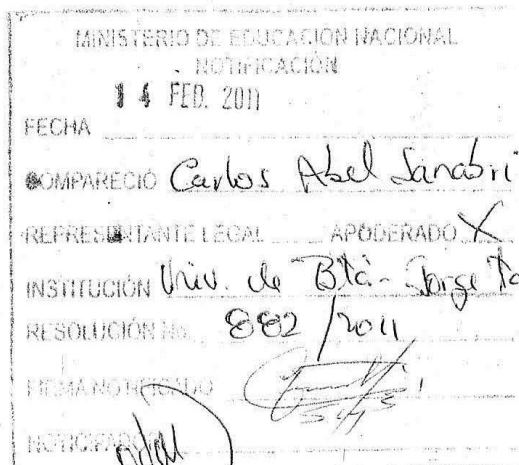 MINISTERIO DE EDUCACIÓN NACIONAL
NOTIFICACIÓN
14 FEB. 2011
FECHA
COMPARECIÓ Carlos Abel Sanabri
REPRESENTANTE LEGAL APODERADO X
INSTITUCIÓN Univ. de Btá - Jorge Ta
RESOLUCIÓN No. 882/2011
FIRMA NOTIFICADO
NOTIFICADOR